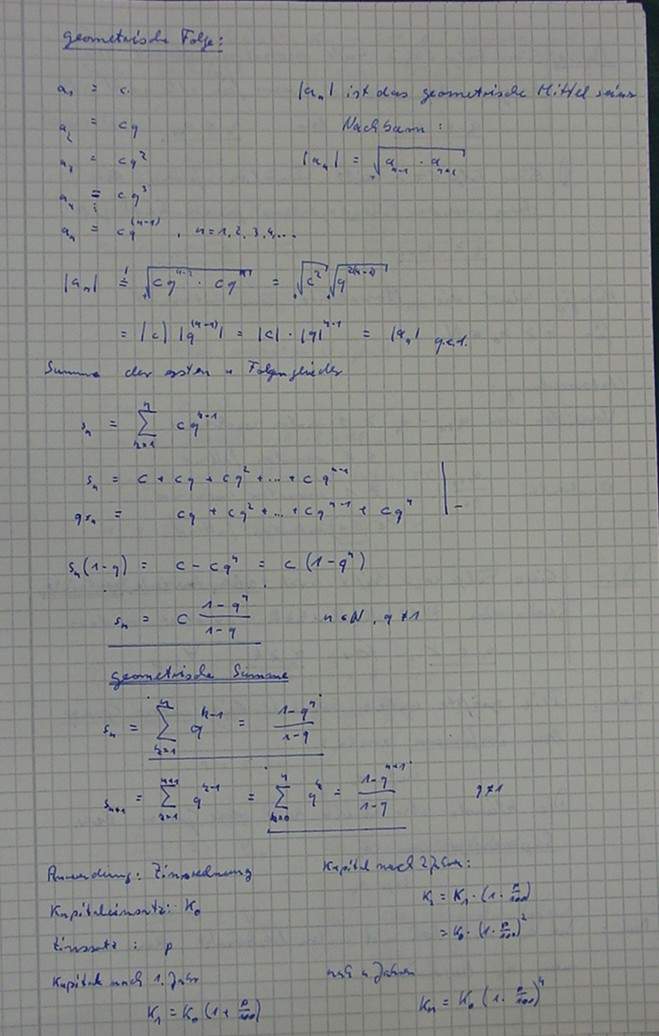 geometrische Folge:
a₁ = c
|aₙ| ist das geometrische Mittel seiner
a₂ = cq
Nachbarn:
a₃ = cq²
|aₙ| = √(aₙ₋₁ · aₙ₊₁)
a₄ = cq³
⋮
aₙ = cq^(n-1) , n = 1, 2, 3, 4, ...
|aₙ| = √(cq^(n-2) · cq^n) = √(c²) √(q^(2(n-1)))
= |c| |q^(n-1)| = |c| · |q|^(n-1) = |aₙ| q.e.d.
Summe der ersten n Folgenglieder
sₙ = ∑_(k=1)^n cq^(k-1)
sₙ = c + cq + cq² + ... + cq^(n-1)
qsₙ = cq + cq² + ... + cq^(n-1) + cq^n | -
sₙ(1-q) = c - cq^n = c (1-q^n)
sₙ = c (1-q^n)/(1-q) n ∈ ℕ, q ≠ 1
geometrische Summe
sₙ = ∑_(k=1)^n q^(k-1) = (1-q^n)/(1-q)
sₙ₊₁ = ∑_(k=1)^(n+1) q^(k-1) = ∑_(k=0)^n q^k = (1-q^(n+1))/(1-q) q ≠ 1
Anwendung: Zinsrechnung
Kapitaleinsatz: K₀
Zinssatz: p
Kapital nach 1. Jahr
K₁ = K₀ (1 + p/100)
Kapital nach 2 Jahren:
K₂ = K₁ · (1 + p/100)
= K₀ · (1 + p/100)²
nach n Jahren
Kₙ = K₀ (1 + p/100)^n